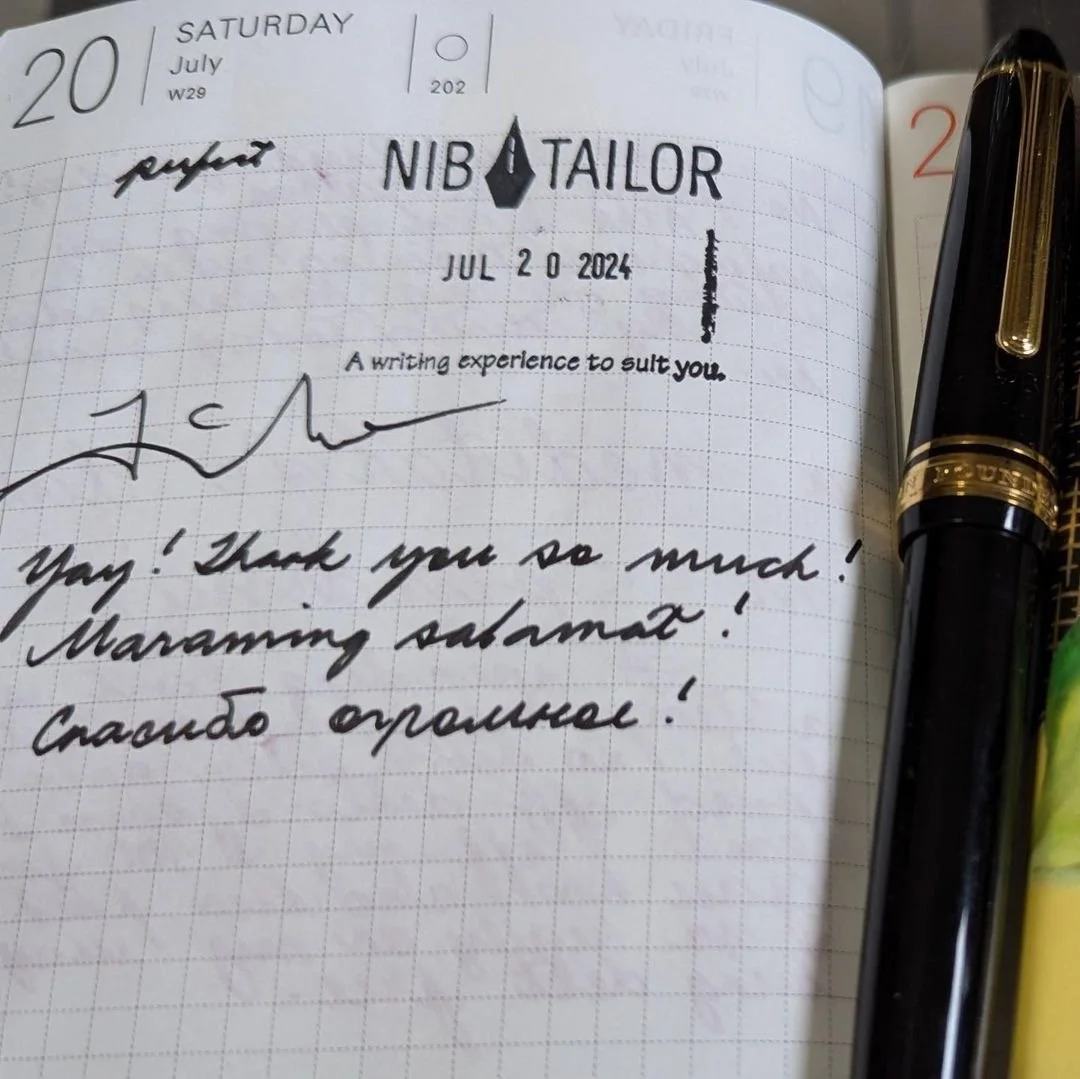 20 SATURDAY
July
W29
202
perfect
NIB TAILOR
JUL 20 2024
A writing experience to suit you.
Yay! Thank you so much!
Maraming salamat!
Спасибо огромное!
2